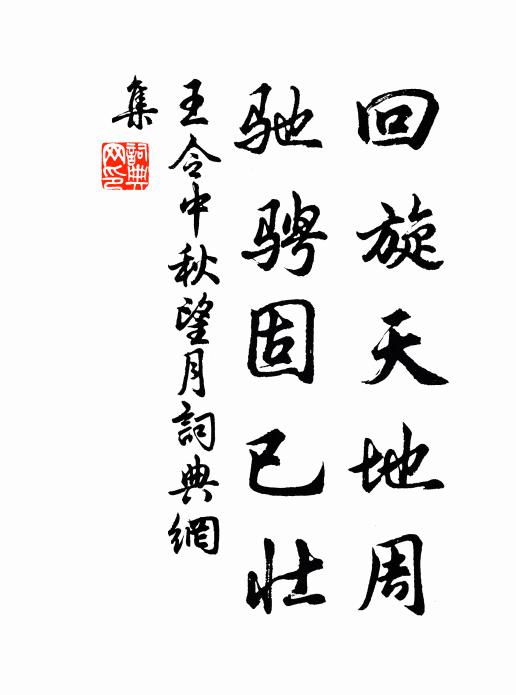 回旋天地周
驰骋固已壮
王令中秋望月詞典網
集
詞典
网印